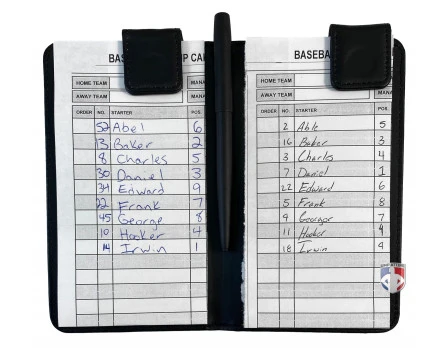 BAS P CA
HOME TEAM MANA
AWAY TEAM MANA
ORDER NO. STARTER POS.
52 Abel 6
13 Baker 2
8 Charles 5
30 Daniel 3
34 Edward 9
22 Frank 7
45 George 8
10 Hooker 4
14 Irwin 1
BASEBA
HOME TEAM MANA
AWAY TEAM MANA
ORDER NO. STARTER POS.
2 Able 5
16 Baker 3
3 Charles 4
7 Daniel 1
22 Edward 6
5 Frank 8
9 George 7
11 Hooker
18 Irwin 9